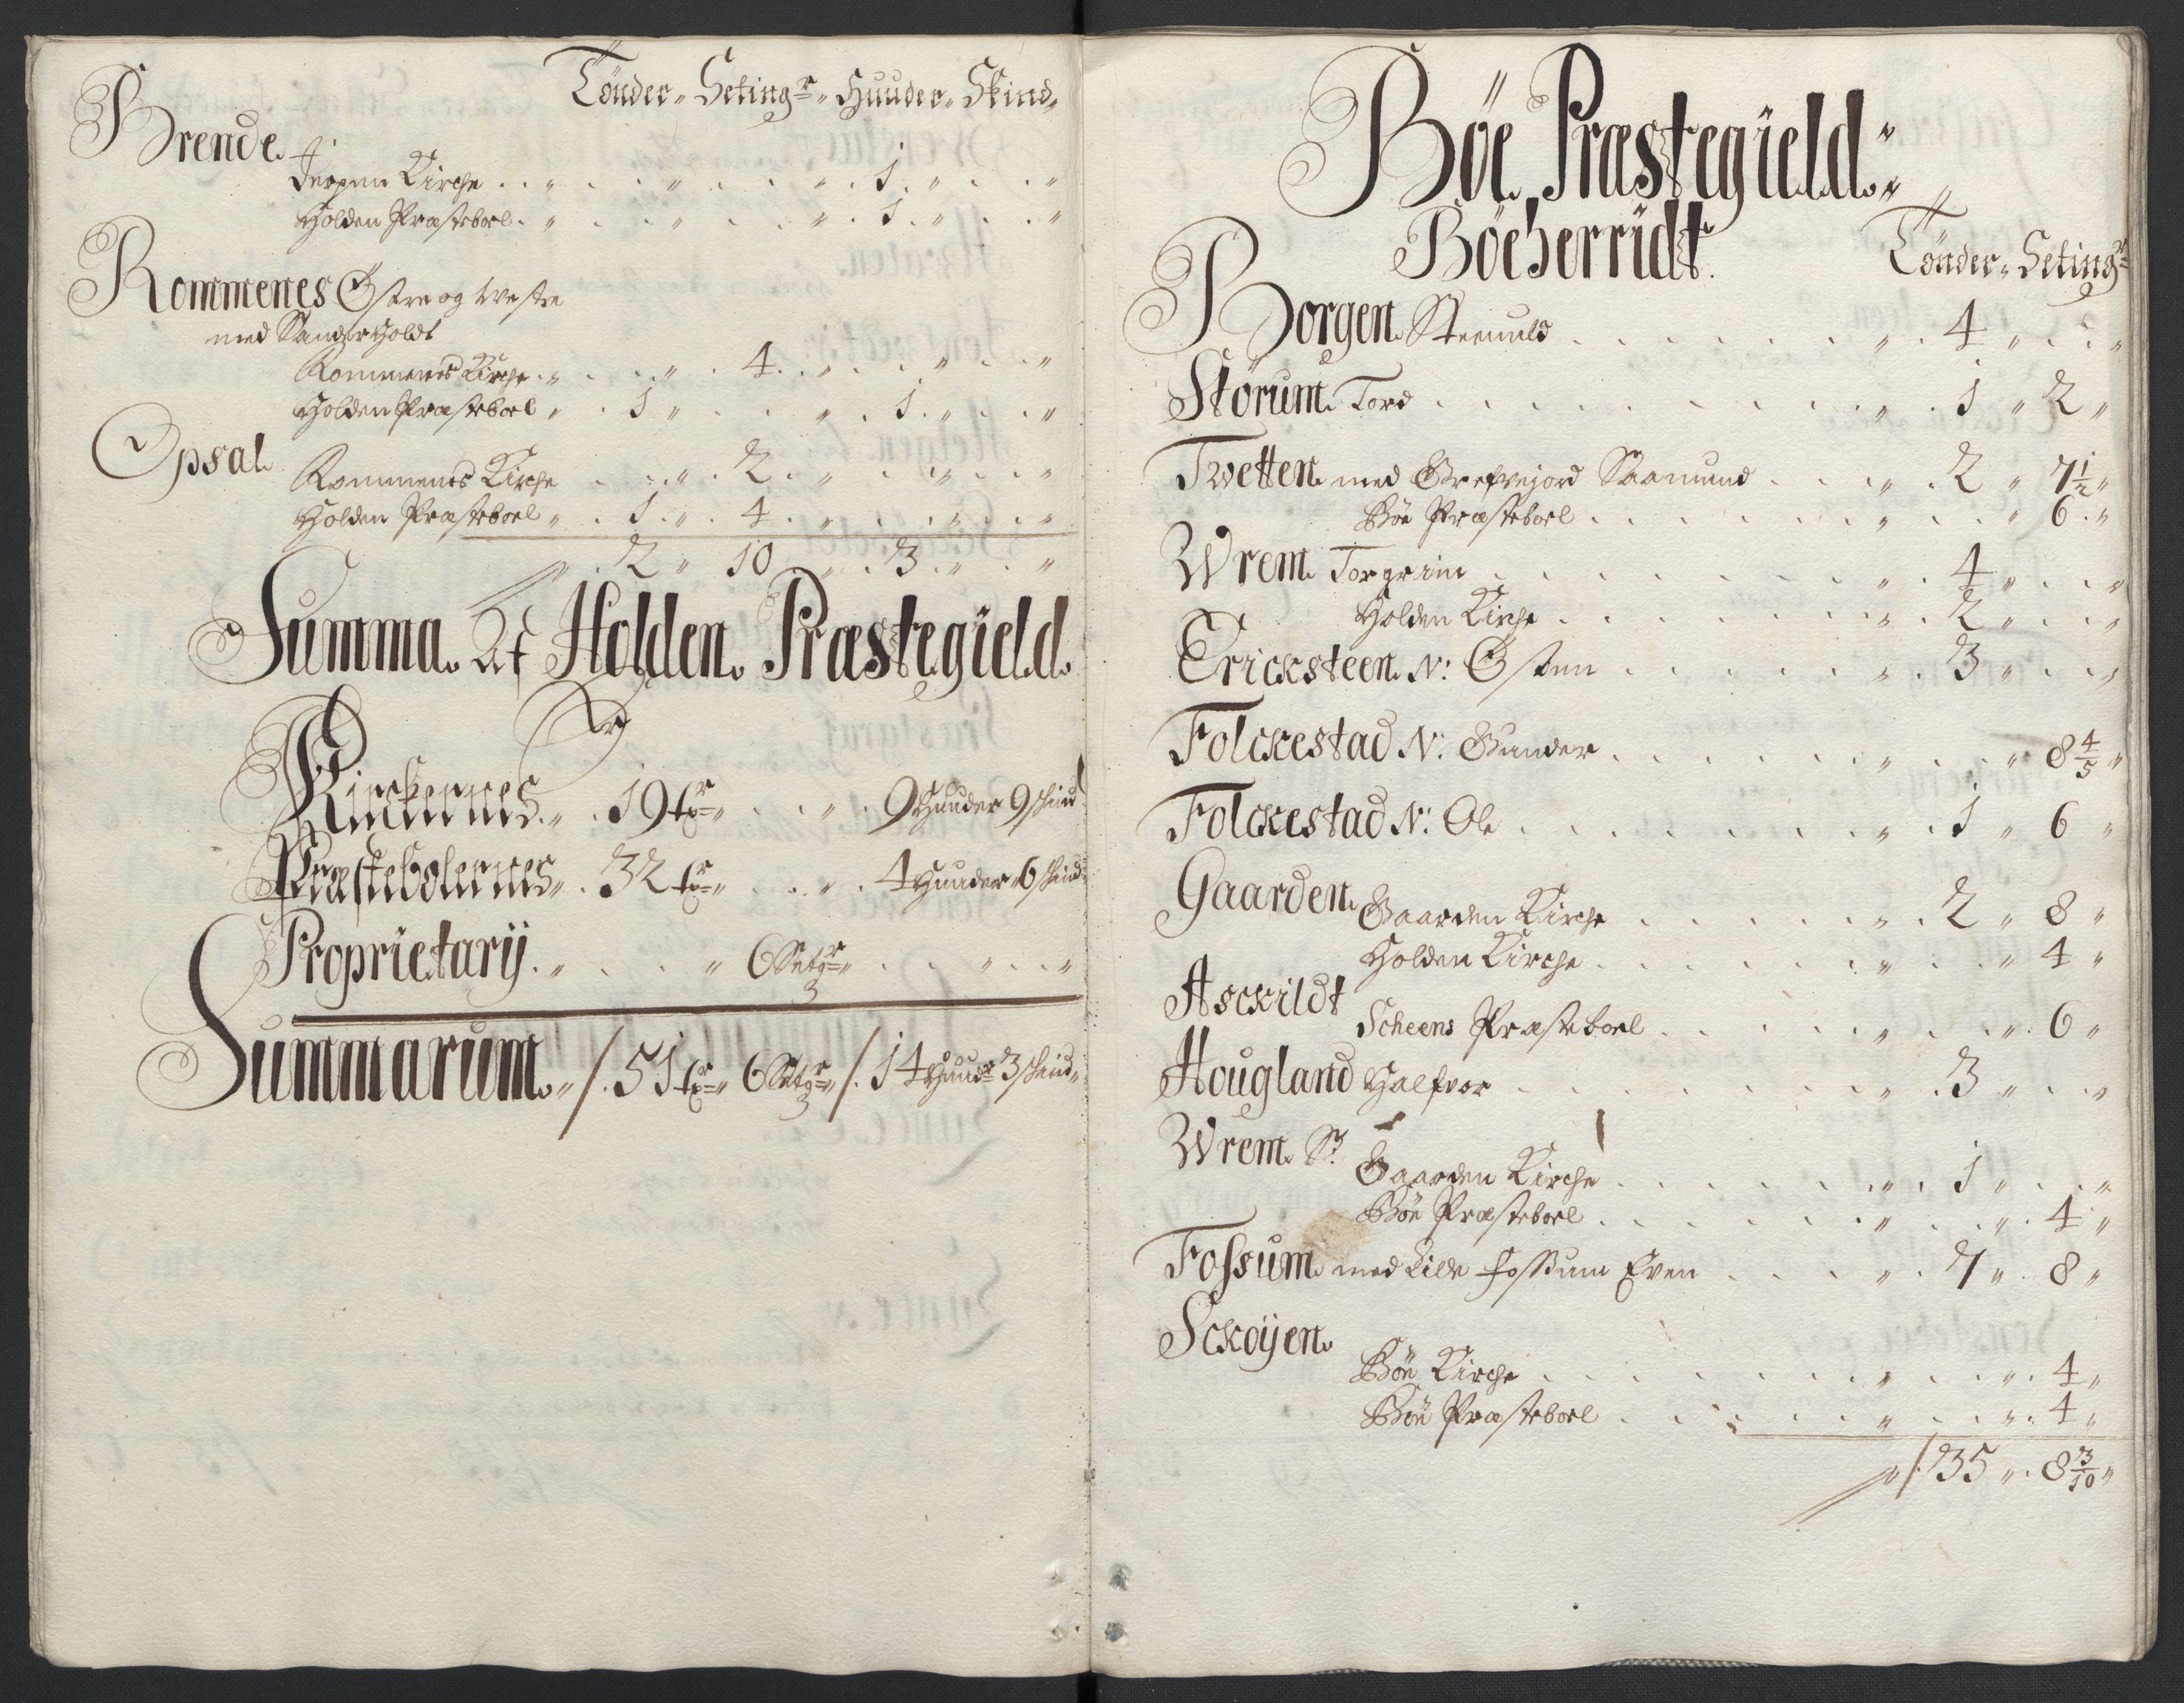 Tönder„ Setingr„ Huuder„ Skind„
Brende
Jerpen Kirche . . „ . . „ . . „ . 1 . „ . . „
Holden Præsteboel . „ . . „ . . „ . 1 . „ . . „
Rommenes Östre og Westre
med Sanderholdt
Rommenes Kirche . „ . . „ . 4 . „ . . „ . . „
Holden Præsteboel „ . 1 „ . . „ . 1 . „ . . „
Opsal
Rommenes Kirche . . „ . 2 . „ . . „ . . „
Holden Præsteboel „ . 1 . „ . 4 . „ . . „ . . „
„ . 2 „ 10 . „ . 3 . „ . „
Summa Af Holden Præstegield
Kirckernes „ . 19 tr „ . . „ . 9 Huuder 9 skind
Præstebolernes „ . 32 tr „ . . „ . 4 Huuder 6 skind
Proprietarÿ . „ . . „ 6 Setgr „ . . „ . . „
Summarum „ /. 51 tr „ 6 Setgr „ /. 14 Huudr 3 skind „
Böe Præstegield „
Böeherridt
Tönder„ Setingr
Borgen Steenuld . . . „ . 4 „ . . „
Störum Tord . . . „ . 1 „ 2 „
Twetten med Grefvejord Saamund . . . „ . 2 „ 7 1/2 „
Böe Præsteboel . . . „ . . „ 6 . „
Wrem Torgrim . . . „ . 4 „ . . „
Holden Kirche . . . „ . 2 „ . . „
Ericksteen N: Östen . . . „ . 3 „ . . „
Folckestad N: Gunder . . . „ . . „ 8 4/5 „
Folckestad N: Ole . . . „ . 1 „ 6 „
Gaarden
Gaarden Kirche . . . „ . 2 „ 8 „
Holden Kirche . . . „ . . „ 4 „
Asckildt
Scheens Præsteboel . . . „ . . „ 6 „
Hougland Halfvor . . . „ . 3 „ . . „
Wrem S:
Gaarden Kirche . . . „ . 1 „ . . „
Böe Præsteboel . . . „ . . „ 4 „
Fossum med Lille Fossum Even . . . „ . 7 „ . 8 „
Sckoÿen
Böe Kirche . . . „ . . „ 4 „
Böe Præsteboel . . . „ . . „ 4 „
„ /. 35 „ . 8 3/10 „